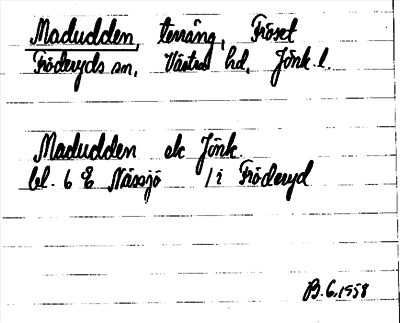 Madudden, terräng, Fröset
Fröderyds sn, Västra hd, Jönk. l.
Madudden ek Jönk.
bl. 6 E Nässjö / i Fröderyd
B. 6. 1958